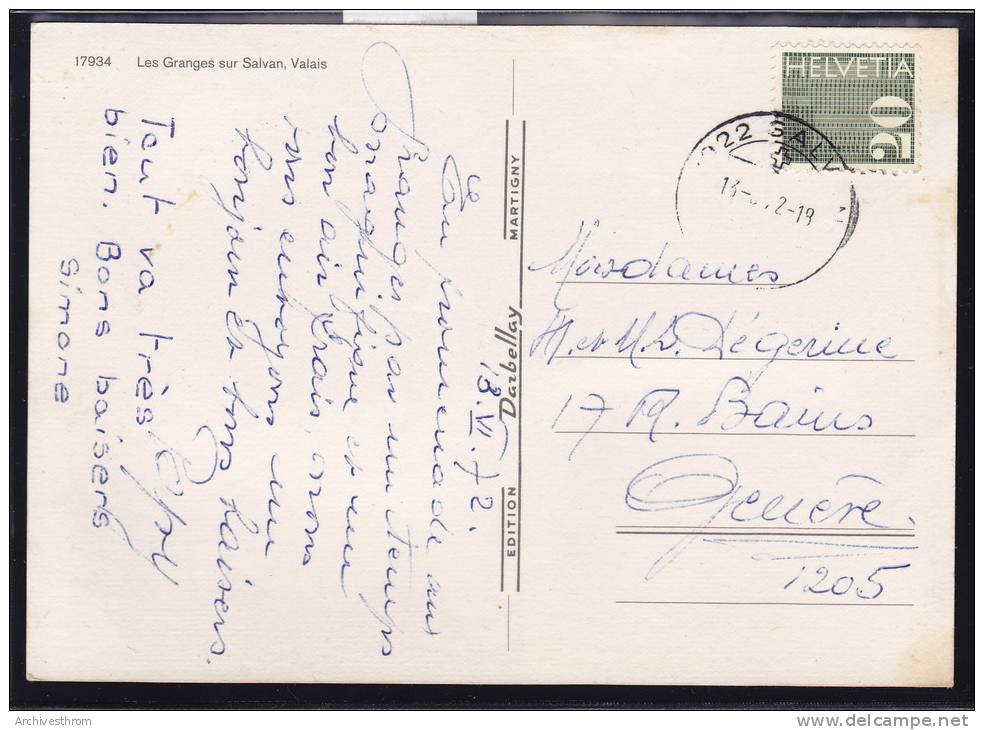 17934 Les Granges sur Salvan, Valais
HELVETIA
50
1922 SALV
13- 2-19
Le 13.VI.72.
En promenade aux
Granges par un temps
magnifique et un
bon air frais, nous
vous envoyons un
bonjour et bons baisers.
Tout va très
bien. Bons baisers
Simone
EDITION Darbellay MARTIGNY
Mesdames
H. et M.D. Dégerine
17 R. Bains
Genève.
1205
Archivesthrom
www.delcampe.net